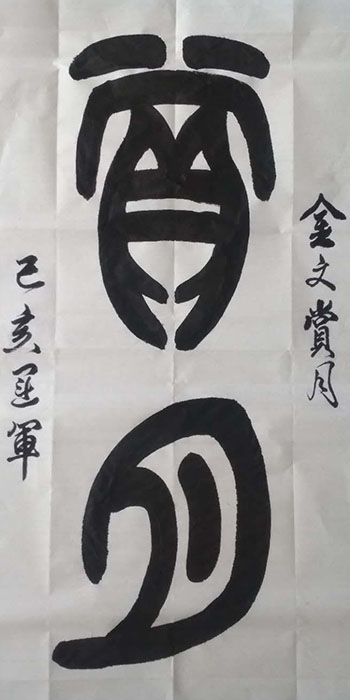 金文賞月
賞月
己亥軍